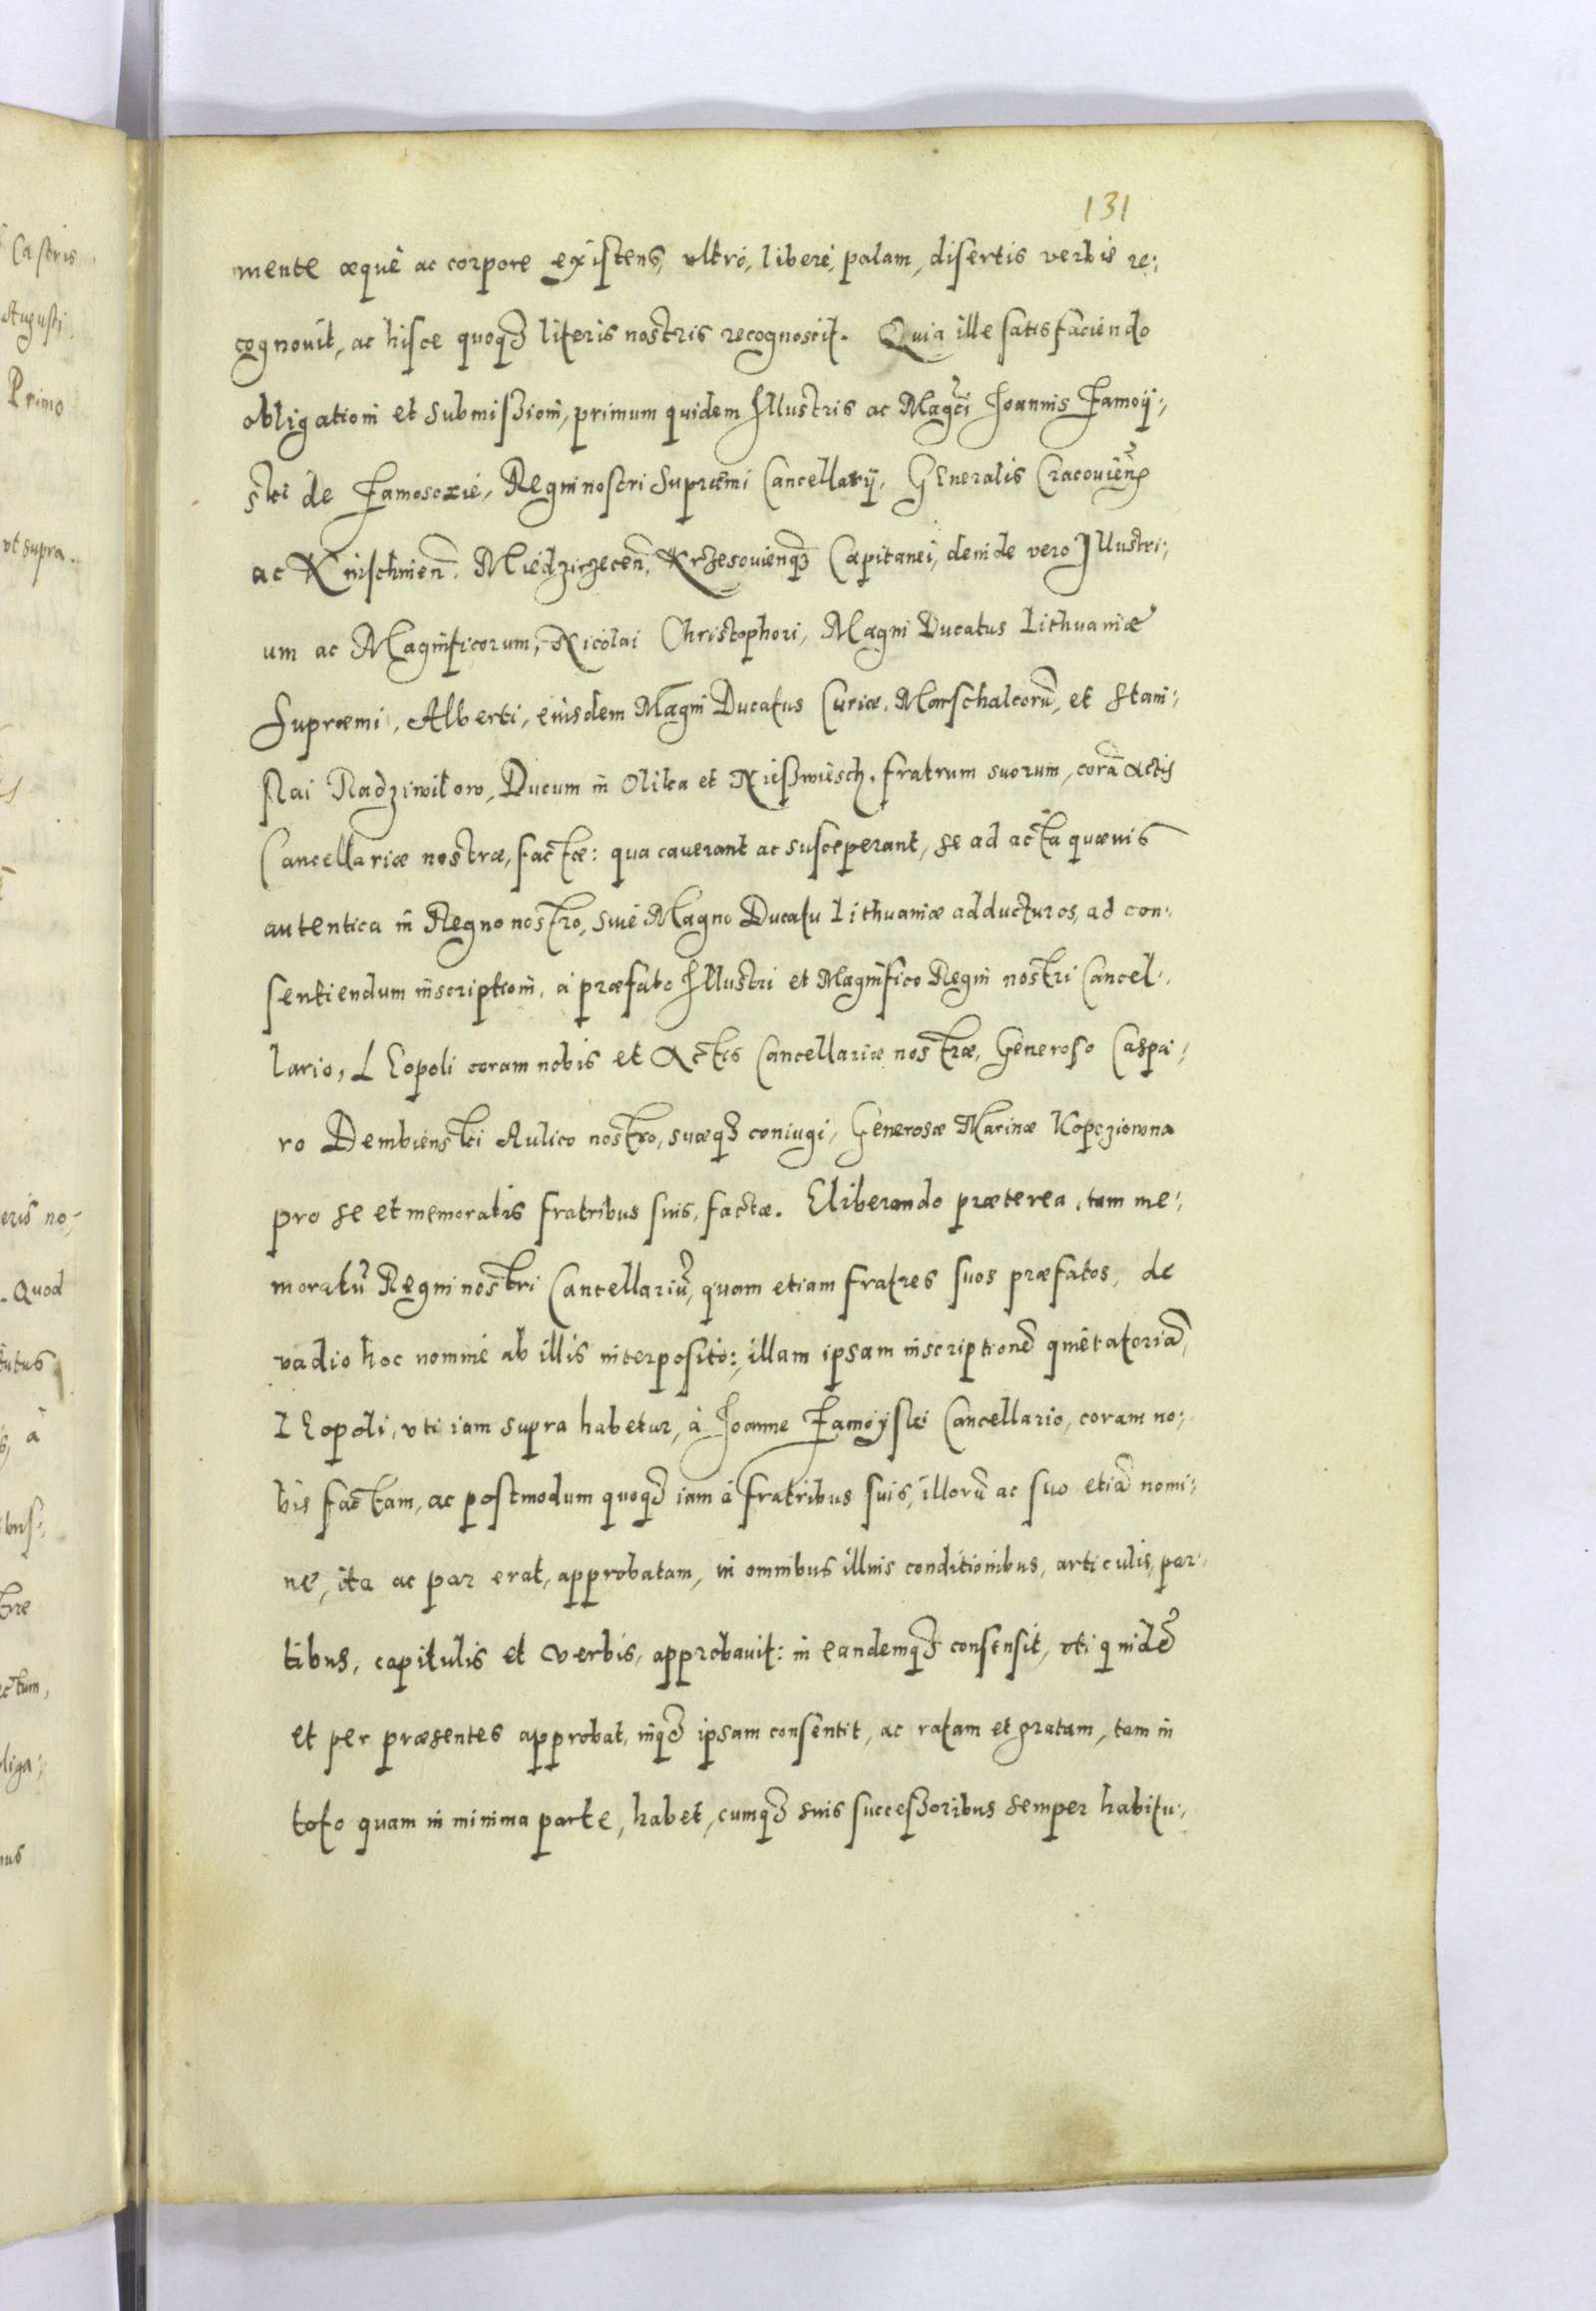 131
mente æque ac corpore existens, vltrò, liberè, palam, disertis verbis re:
cognouit, ac hisce quoq3 literis nostris recognoscit. Quia ille satisfaciendo
obligationi et submißioni, primum quidem Illustris ac Mag:ci Joannis Zamoÿ:
ski de Zamoscxie, Regni nostri Supræmi Cancellarij, Generalis Cracouien̄
ac Knischinen̄. Miedzirzecen̄, Krzesouienq3 Capitanei, deinde vero Illustri:
um ac Magnificorum, Nicolai Christophori, Magni Ducatus Lithuaniæ
Supræmi, Alberti, eiusdem Magni Ducatus Curiæ, Marschalcorū, et Stani:
slai Radziwilow, Ducum in Olika et Nießwiesch, fratrum suorum, corā Actis
Cancellariæ nostræ, factæ: qua cauerant ac susceperant, se ad acta quæuis
autentica in Regno nostro, siue Magno Ducatu Lithuaniæ adducturos, ad con:
sentiendum inscriptioni, à præfato Illustri et Magnifico Regni nostri Cancel:
lario, Leopoli coram nobis et Actis Cancellariæ nostræ, Generoso Caspa:
ro Dembienski Aulico nostro, suæq3 coniugi, Generosæ Marinæ Kopcziowna
pro se et memoratis fratribus suis, factæ. Eliberando præterea, tam me:
moratū Regni nostri Cancellariū, quam etiam fratres suos præfatos, de
vadio hoc nomine ab illis interposito:, illam ipsam inscriptionē quietatoriā,
Leopoli, vti iam supra habetur, à Joanne Zamoÿski Cancellario, coram no:
bis factam, ac postmodum quoq3 iam à fratribus suis, illorū ac suo etiā nomi:
ne, ita ac par erat, approbatam, in omnibus illius conditionibus, articulis, par:
tibus, capitulis et verbis, approbauit: in eandemq3 consensit, vti quidē
et per præsentes approbat, inq3 ipsam consentit, ac ratam et gratam, tam in
toto quam in minima parte, habet, cumq3 suis succeßoribus semper habitu:
Castris
Augusti
Primo
vt supra.
eris no:
. Quod
tutus
à
ibus
træ
ctum,
liga:
nus